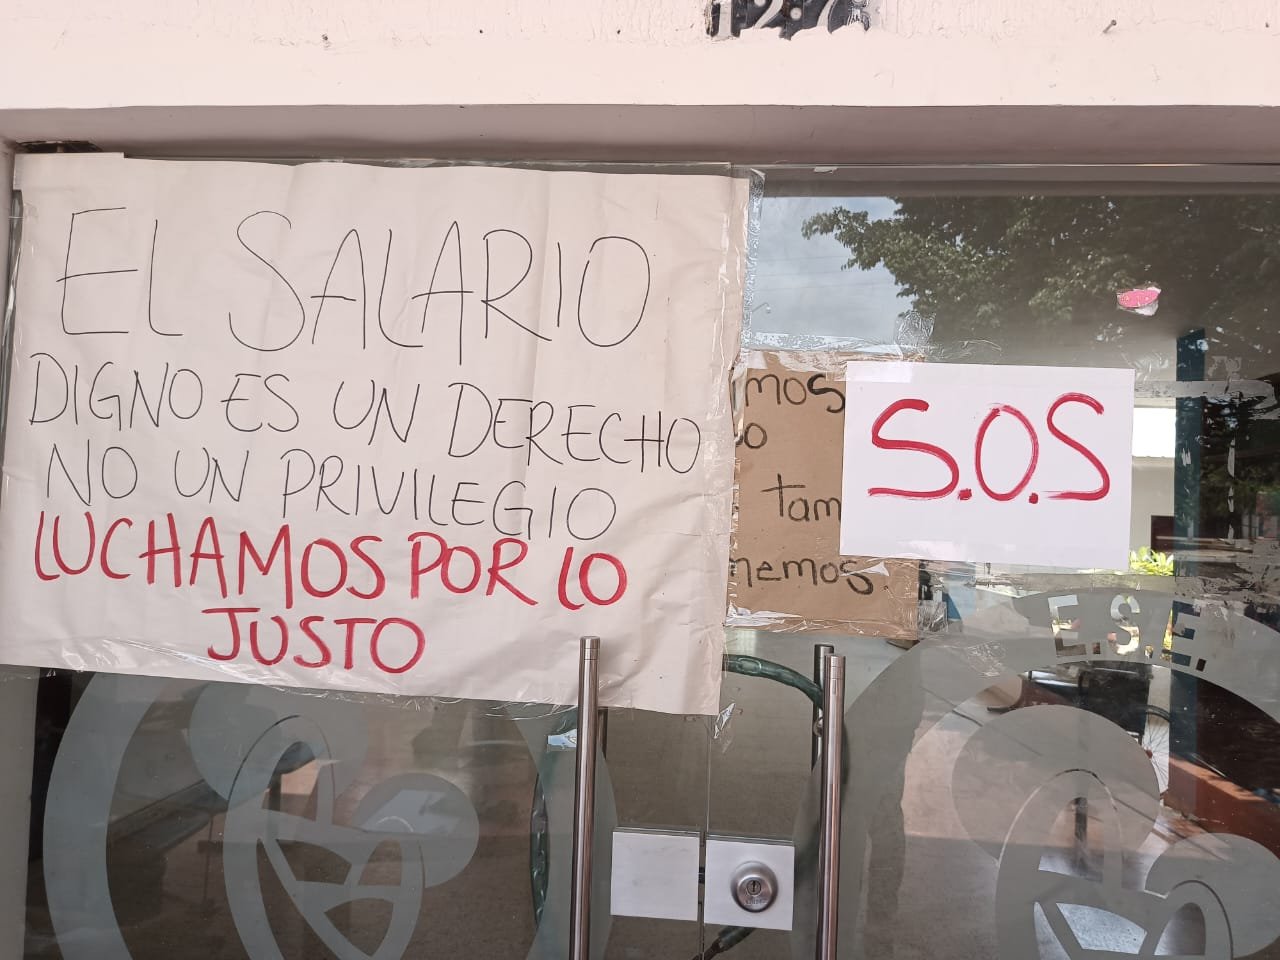 EL SALARIO
DIGNO ES UN DERECHO
NO UN PRIVILEGIO
LUCHAMOS POR LO
JUSTO
tam
S.O.S
E.S.E.